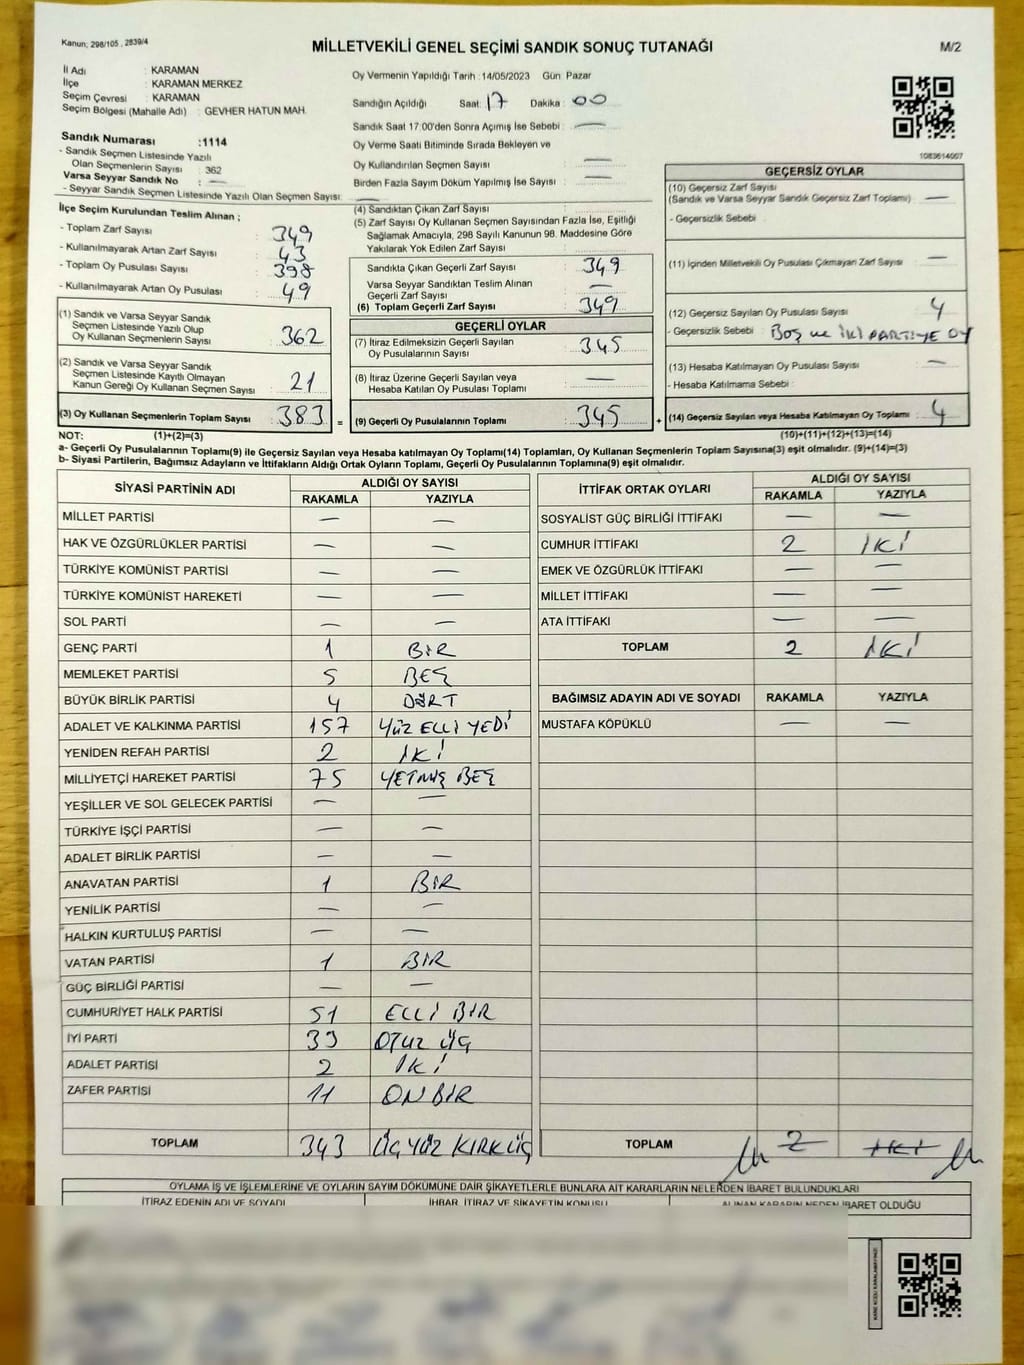 Kanun; 298/105 , 2839/4
MİLLETVEKİLİ GENEL SEÇİMİ SANDIK SONUÇ TUTANAĞI
M/2
İl Adı : KARAMAN
İlçe : KARAMAN MERKEZ
Seçim Çevresi : KARAMAN
Seçim Bölgesi (Mahalle Adı) : GEVHER HATUN MAH.
Oy Vermenin Yapıldığı Tarih :14/05/2023 Gün Pazar
Sandığın Açıldığı Saat: 17 Dakika : 00
Sandık Saat 17:00'den Sonra Açmış İse Sebebi : —
Oy Verme Saati Bitiminde Sırada Bekleyen ve
Oy Kullandırılan Seçmen Sayısı : —
Birden Fazla Sayım Döküm Yapılmış İse Sayısı : —
1083614007
Sandık Numarası :1114
- Sandık Seçmen Listesinde Yazılı
Olan Seçmenlerin Sayısı : 362
Varsa Seyyar Sandık No : —
- Seyyar Sandık Seçmen Listesinde Yazılı Olan Seçmen Sayısı: —
İlçe Seçim Kurulundan Teslim Alınan ;
- Toplam Zarf Sayısı : 349
- Kullanılmayarak Artan Zarf Sayısı : 43
- Toplam Oy Pusulası Sayısı : 398
- Kullanılmayarak Artan Oy Pusulası : 49
(1) Sandık ve Varsa Seyyar Sandık
Seçmen Listesinde Yazılı Olup
Oy Kullanan Seçmenlerin Sayısı : 362
(2) Sandık ve Varsa Seyyar Sandık
Seçmen Listesinde Kayıtlı Olmayan
Kanun Gereği Oy Kullanan Seçmen Sayısı : 21
(3) Oy Kullanan Seçmenlerin Toplam Sayısı : 383 =
(4) Sandıktan Çıkan Zarf Sayısı :
(5) Zarf Sayısı Oy Kullanan Seçmen Sayısından Fazla İse, Eşitliği
Sağlamak Amacıyla, 298 Sayılı Kanunun 98. Maddesine Göre
Yakılarak Yok Edilen Zarf Sayısı :
Sandıkta Çıkan Geçerli Zarf Sayısı : 349
Varsa Seyyar Sandıktan Teslim Alınan
Geçerli Zarf Sayısı : —
(6) Toplam Geçerli Zarf Sayısı : 349
GEÇERLİ OYLAR
(7) İtiraz Edilmeksizin Geçerli Sayılan
Oy Pusulalarının Sayısı : 345
(8) İtiraz Üzerine Geçerli Sayılan veya
Hesaba Katılan Oy Pusulası Toplamı : —
(9) Geçerli Oy Pusulalarının Toplamı : 345 +
GEÇERSİZ OYLAR
(10) Geçersiz Zarf Sayısı
(Sandık ve Varsa Seyyar Sandık Geçersiz Zarf Toplamı) : —
- Geçersizlik Sebebi :
(11) İçinden Milletvekili Oy Pusulası Çıkmayan Zarf Sayısı : —
(12) Geçersiz Sayılan Oy Pusulası Sayısı : 4
- Geçersizlik Sebebi : BOŞ ve İKİ PARTİYE OY
(13) Hesaba Katılmayan Oy Pusulası Sayısı : —
- Hesaba Katılmama Sebebi :
(14) Geçersiz Sayılan veya Hesaba Katılmayan Oy Toplamı : 4
NOT: (1)+(2)=(3)
(10)+(11)+(12)+(13)=(14)
a- Geçerli Oy Pusulalarının Toplamı(9) ile Geçersiz Sayılan veya Hesaba katılmayan Oy Toplamı(14) Toplamları, Oy Kullanan Seçmenlerin Toplam Sayısına(3) eşit olmalıdır. (9)+(14)=(3)
b- Siyasi Partilerin, Bağımsız Adayların ve İttifakların Aldığı Ortak Oyların Toplamı, Geçerli Oy Pusulalarının Toplamına(9) eşit olmalıdır.
SİYASİ PARTİNİN ADI
ALDIĞI OY SAYISI
RAKAMLA YAZIYLA
MİLLET PARTİSİ — —
HAK VE ÖZGÜRLÜKLER PARTİSİ — —
TÜRKİYE KOMÜNİST PARTİSİ — —
TÜRKİYE KOMÜNİST HAREKETİ — —
SOL PARTİ — —
GENÇ PARTİ 1 BİR
MEMLEKET PARTİSİ 5 BEŞ
BÜYÜK BİRLİK PARTİSİ 4 DÖRT
ADALET VE KALKINMA PARTİSİ 157 YÜZ ELLİ YEDİ
YENİDEN REFAH PARTİSİ 2 İKİ
MİLLİYETÇİ HAREKET PARTİSİ 75 YETMİŞ BEŞ
YEŞİLLER VE SOL GELECEK PARTİSİ — —
TÜRKİYE İŞÇİ PARTİSİ — —
ADALET BİRLİK PARTİSİ — —
ANAVATAN PARTİSİ 1 BİR
YENİLİK PARTİSİ — —
HALKIN KURTULUŞ PARTİSİ — —
VATAN PARTİSİ 1 BİR
GÜÇ BİRLİĞİ PARTİSİ — —
CUMHURİYET HALK PARTİSİ 51 ELLİ BİR
İYİ PARTİ 33 OTUZ ÜÇ
ADALET PARTİSİ 2 İKİ
ZAFER PARTİSİ 11 ON BİR
TOPLAM 343 ÜÇ YÜZ KIRK ÜÇ
İTTİFAK ORTAK OYLARI
ALDIĞI OY SAYISI
RAKAMLA YAZIYLA
SOSYALİST GÜÇ BİRLİĞİ İTTİFAKI — —
CUMHUR İTTİFAKI 2 İKİ
EMEK VE ÖZGÜRLÜK İTTİFAKI — —
MİLLET İTTİFAKI — —
ATA İTTİFAKI — —
TOPLAM 2 İKİ
BAĞIMSIZ ADAYIN ADI VE SOYADI RAKAMLA YAZIYLA
MUSTAFA KÖPÜKLÜ — —
TOPLAM 2 İKİ
OYLAMA İŞ VE İŞLEMLERİNE VE OYLARIN SAYIM DÖKÜMÜNE DAİR ŞİKAYETLERLE BUNLARA AİT KARARLARIN NELERDEN İBARET BULUNDUKLARI
İTİRAZ EDENİN ADI VE SOYADI
İHBAR, İTİRAZ VE ŞİKAYETİN KONUSU
ALINAN KARARIN NEDEN İBARET OLDUĞU
KARE KODU KARALAMAYINIZ!